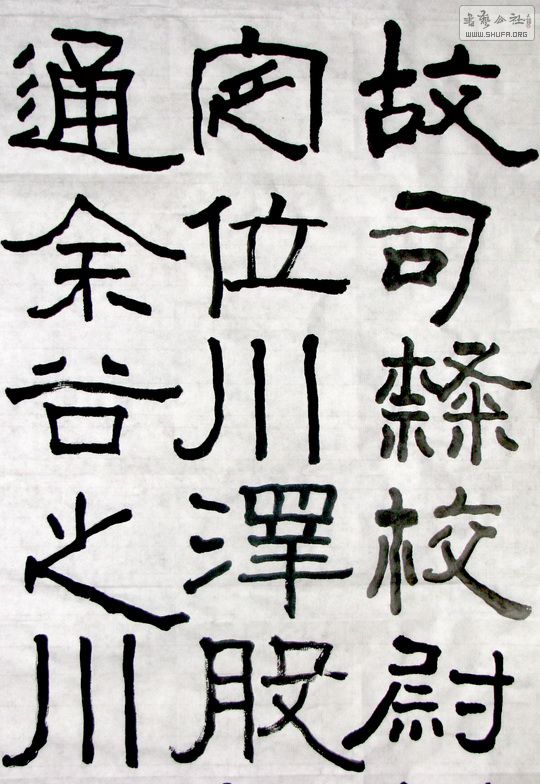 故司隸校尉
定位川澤股
通余谷之川
書藝公社
WWW.SHUFA.ORG